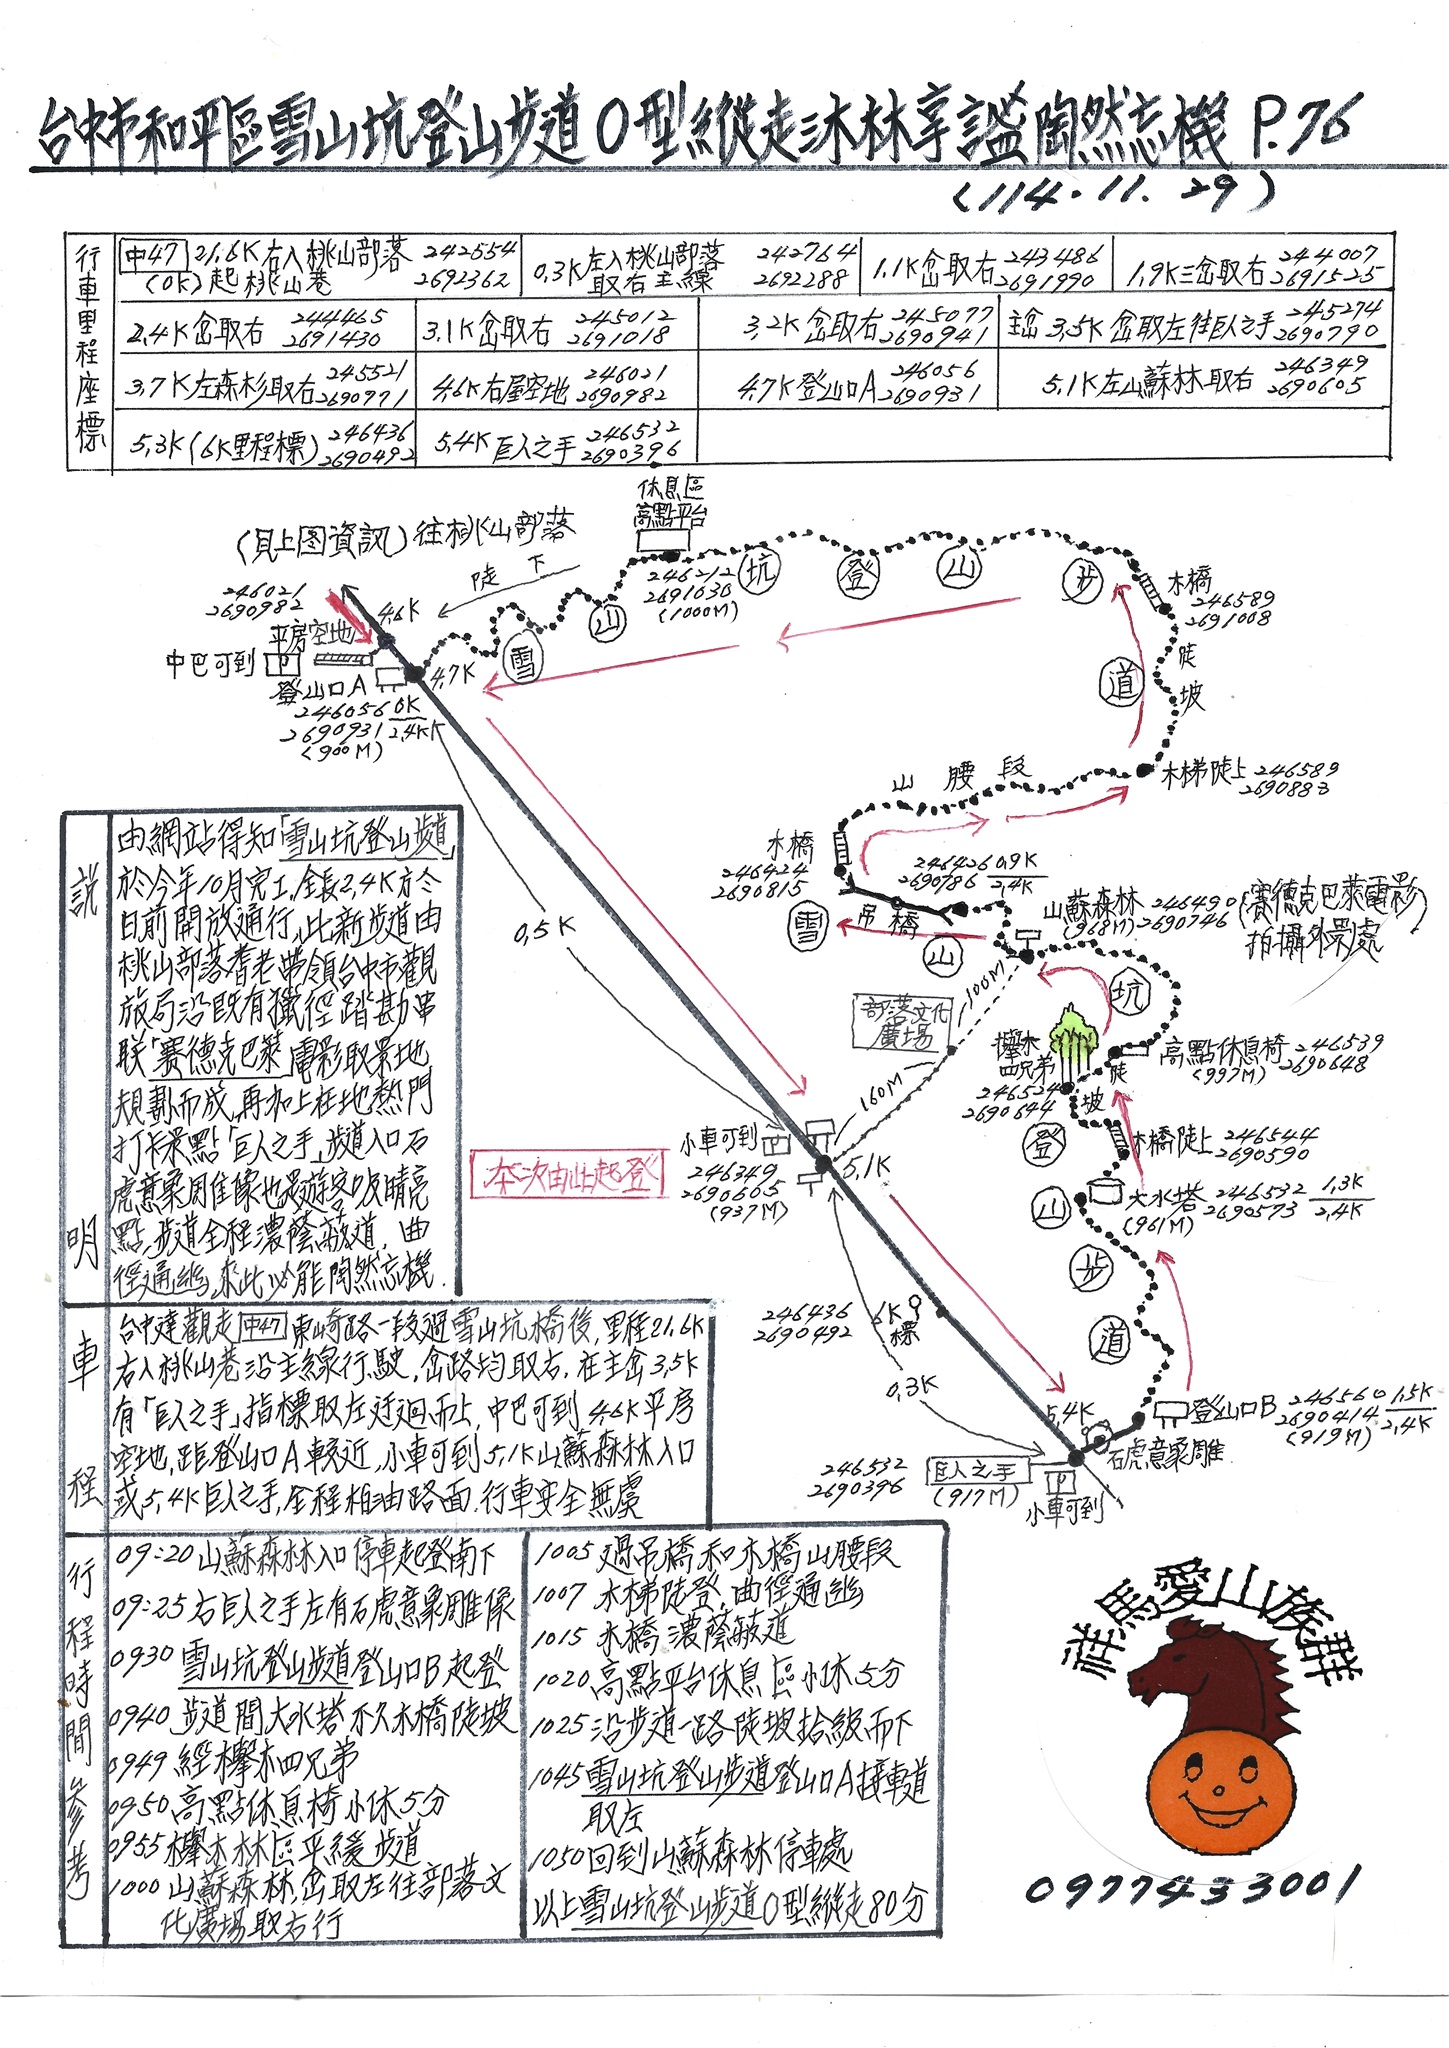 台中市和平區雪山坑登山步道O型縱走沐林享謐陶然忘機 P.76
(114.11.29)
行車里程座標
中47 21.6K右入桃山部落 242554
(0K)起桃山巷 2692362
0.3K左入桃山部落 242764
取右主線 2692288
1.1K岔取右 243486
2691990
1.9K三岔取右 244007
2691525
2.4K岔取右 244465
2691430
3.1K岔取右 245012
2691018
3.2K岔取右 245077
2690941
主岔 3.5K岔取左往巨人之手 245274
2690790
3.7K左森杉取右 245521
2690771
4.6K右屋空地 246021
2690982
4.7K登山口A 246056
2690931
5.1K左山蘇林取右 246349
2690605
5.3K(6K里程標) 246436
2690492
5.4K巨人之手 246532
2690396
(見上图資訊)往桃山部落
休息區
高點平台
246212
2691030
(1000M)
陡下
246021
2690982
4.6K
平房空地
中巴可到 P
登山口A
4.7K
246056 0K
2690931 2.4K
(900M)
雪山坑登山步道
木橋
246589
2691008
陡坡
木梯陡上 246589
2690883
山腰段
木橋
246424
2690815
246426 0.9K
2690786 2.4K
吊橋
山蘇森林 246490
(968M) 2690746
(賽德克巴萊電影
拍攝外景處)
雪山坑登山步道
100M
部落文化
廣場
160M
0.5K
櫸木
四兄弟
246524
2690644
陡坡
高點休息椅 246539
(997M) 2690648
木橋陡上 246544
2690590
大水塔 246532 1.3K
(961M) 2690573 2.4K
小車可到 P
246349
2690605
(937M)
5.1K
本次由此起登
246436
2690492
6K
標
0.3K
5.4K
登山口B 246560 1.5K
2690414 2.4K
(919M)
石虎意象雕
246532
2690396
巨人之手
(917M)
P
小車可到
說明
由網站得知「雪山坑登山步道」
於今年10月完工,全長2.4K方冬
日前開放通行,此新步道由
桃山部落耆老帶領台中市觀
放局沿既有獵徑踏勘串
联「賽德克巴萊」電影取景地
規劃而成,再加上在地熱門
打卡景點「巨人之手」步道入口石
虎意象周隹像也是遊客吸睛亮
點,步道全程濃蔭蔽道,曲
徑通幽,來此必能陶然忘機.
車程
台中達觀走中47東崎路一段過雪山坑橋後,里程21.6K
右入桃山巷沿主線行駛,岔路均取右,在主岔3.5K
有「巨人之手」指標取左迂迴而上,中巴可到4.6K平房
空地,距登山口A較近,小車可到5.1K山蘇森林入口
或5.4K巨人之手,全程柏油路面,行車安全無虞
行程時間參考
09:20山蘇森林入口停車起登南下
09:25右巨人之手左有石虎意象雕像
0930雪山坑登山步道登山口B起登
0940步道間大水塔不久木橋陡坡
0949經櫸木四兄弟
0950高點休息椅小休5分
0955櫸木林區平緩步道
1000山蘇森林,岔取左往部落文
化廣場取右行
1005過吊橋和木橋山腰段
1007木梯陡登,曲徑通幽
1015木橋濃蔭蔽道
1020高點平台休息區小休5分
1025沿步道一路陡坡拾級而下
1045雪山坑登山步道登山口A接車道
取左
1050回到山蘇森林停車處
以上雪山坑登山步道O型縱走80分
祥馬愛山族群
0977433001